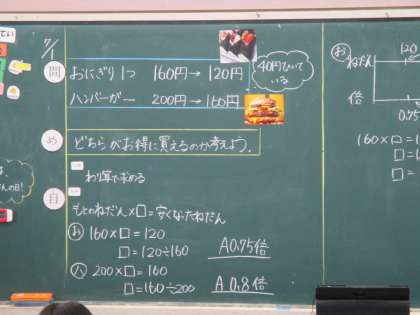 7/1
問
おにぎり1つ 160円→120円
ハンバーガー 200円→160円
40円ひいて
いる
め
どちらがお得に買えるのか考えよう。
わり算で求める
自
もとのねだん×□=安くなったねだん
お 160×□=120
□=120÷160
A 0.75倍
ハ 200×□=160
□=160÷200
A 0.8倍
お
ねだん
120
倍
0.75
160×□=1
□=1
□=